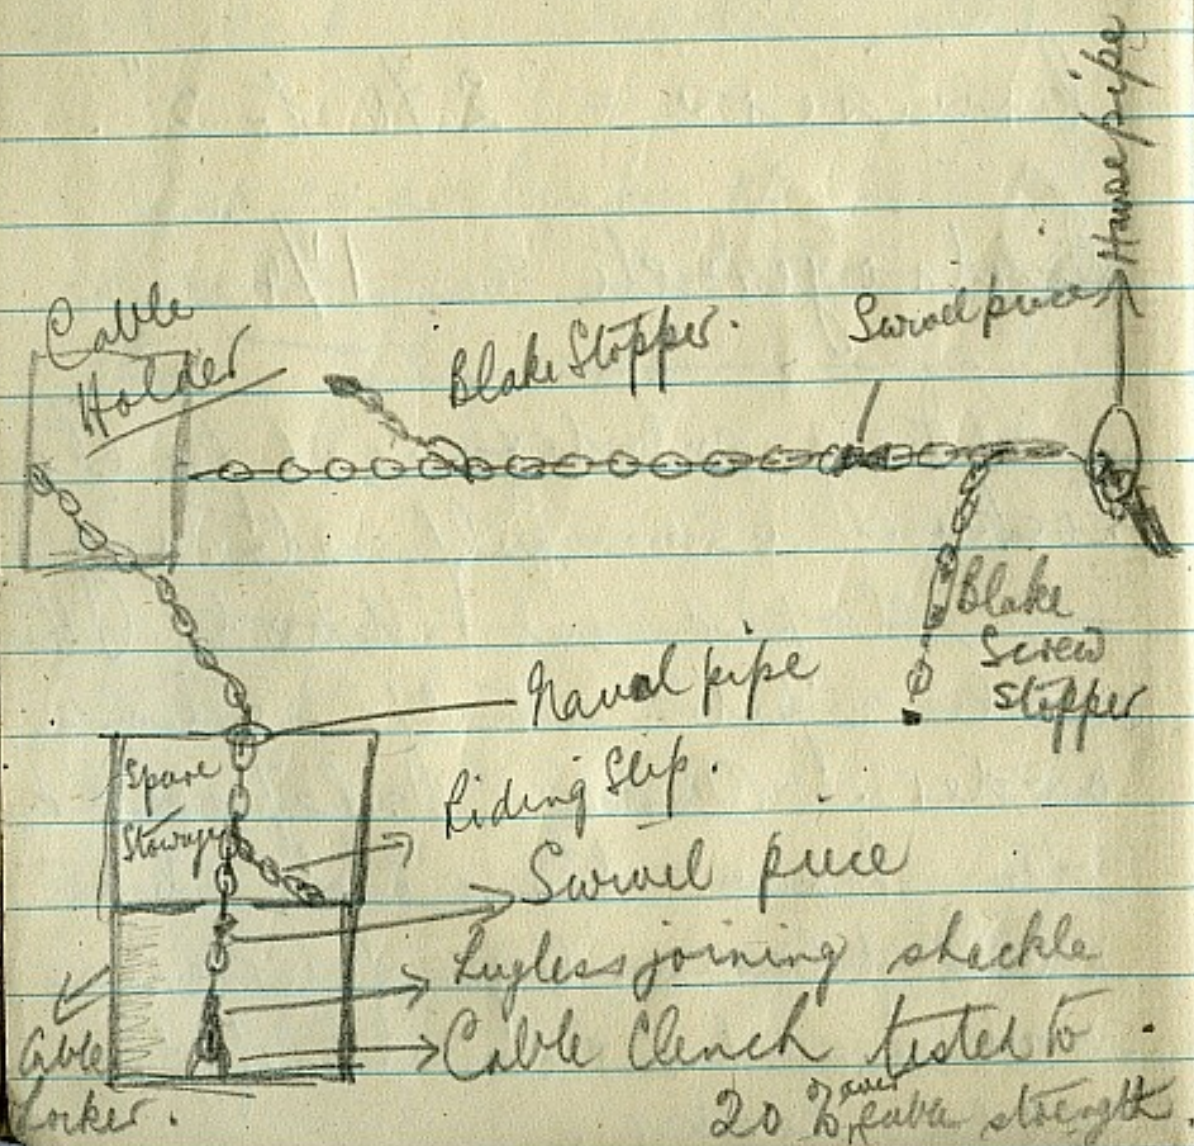 Hawse pipe
Cable
Holder
Blake Stopper.
Swivel piece
Blake
Screw
Stopper
Naval pipe
Spare
Stowage
Riding Slip.
Swivel piece
Lugless joining shackle
Cable Clench tested to
20 % over cable strength.
Cable
Locker.